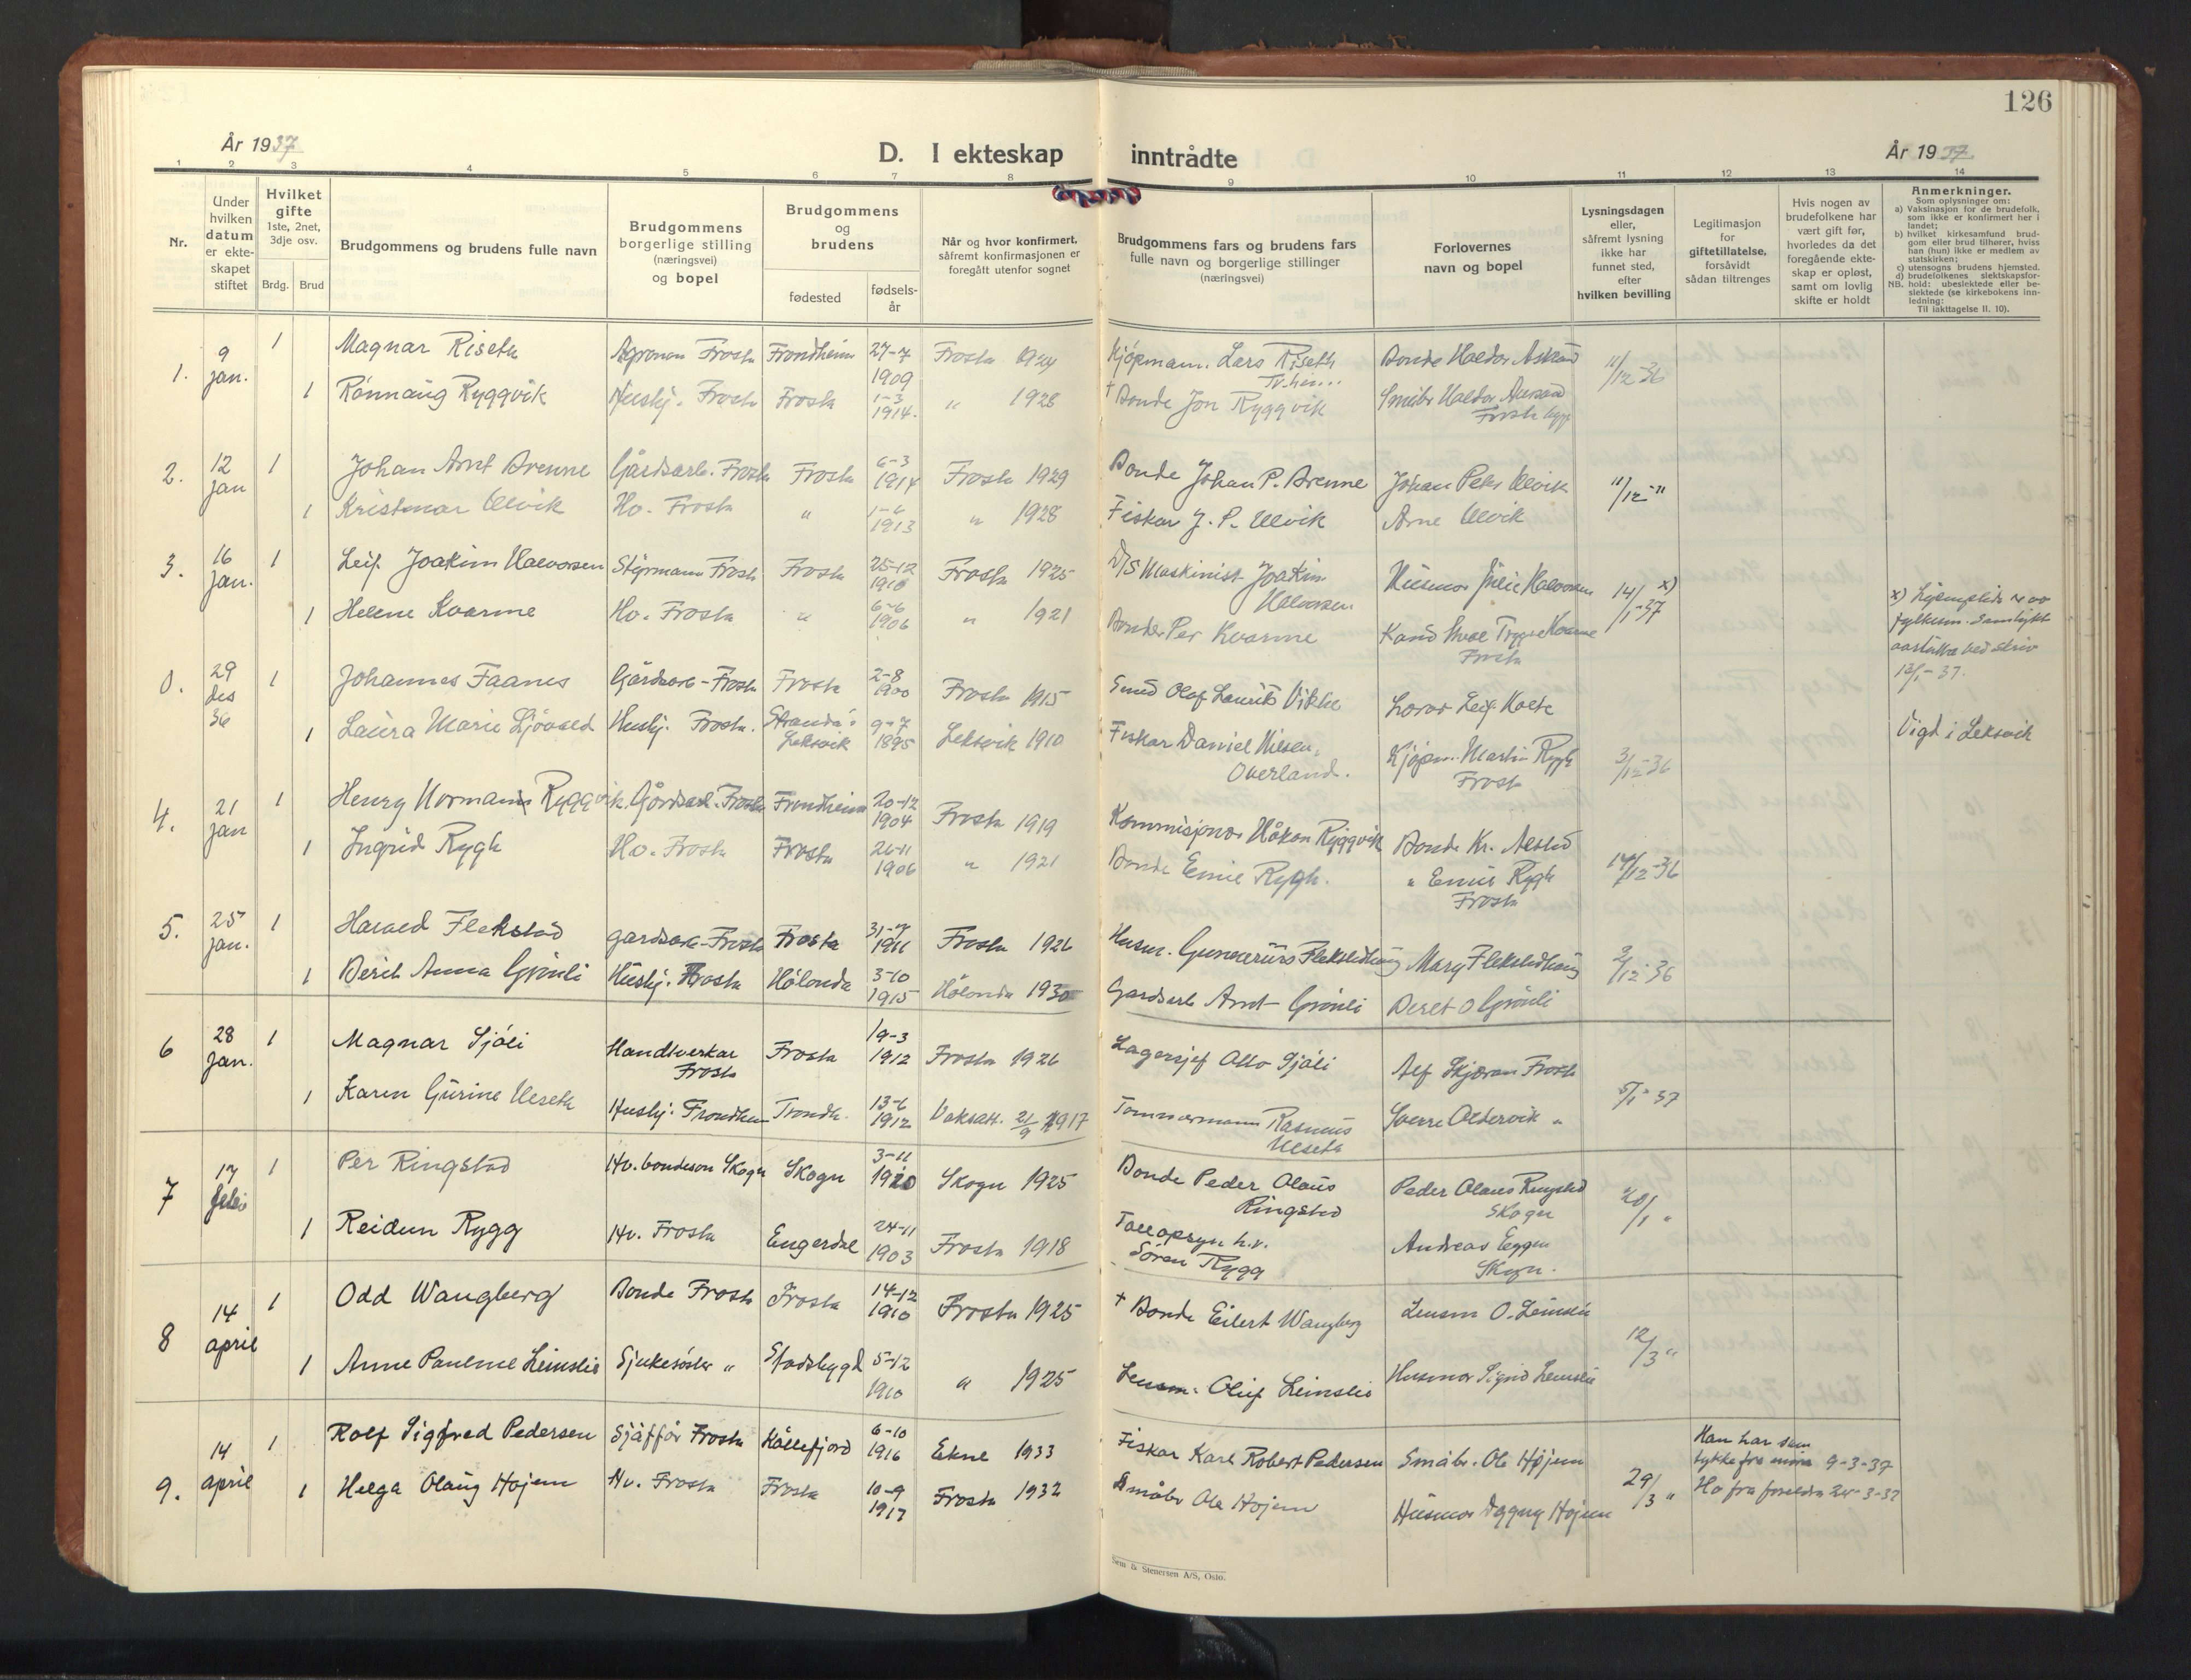 126
År 1937
D. I ekteskap inntrådte
År 1937
1 2 3 4 5 6 7 8 9 10 11 12 13 14
Nr.
Under hvilken datum er ekte- skapet stiftet
Hvilket gifte 1ste, 2net, 3dje osv.
Brdg. Brud
Brudgommens og brudens fulle navn
Brudgommens borgerlige stilling (næringsvei) og bopel
Brudgommens og brudens
fødested
fødsels- år
Når og hvor konfirmert, såfremt konfirmasjonen er foregått utenfor sognet
Brudgommens fars og brudens fars fulle navn og borgerlige stillinger (næringsvei)
Forlovernes navn og bopel
Lysningsdagen eller, såfremt lysning ikke har funnet sted, efter hvilken bevilling
Legitimasjon for giftetillatelse, forsåvidt sådan tiltrenges
Hvis nogen av brudefolkene har vært gift før, hvorledes da det foregående ekte- skap er opløst, samt om lovlig skifte er holdt
Anmerkninger.
Som oplysninger om:
a) Vaksinasjon for de brudefolk, som ikke er konfirmert her i landet;
b) hvilket kirkesamfund brud- gom eller brud tilhører, hviss han (hun) ikke er medlem av statskirken;
c) utensogns brudens hjemsted.
d) brudefolkenes slektskapsfor- hold: ubeslektede eller be- slektede (se kirkebokens inn- ledning:
NB.
Til iakttagelse II. 10).
1. 9 jan. 1 Magnar Riseth Agronom Frosta Trondheim 27-7 1909 Frosta 1924 Kjøpmann Lars Riseth Tr.heim Bonde Haldor Aksnes 11/12-36
1 Rønnaug Ryggvik Hushj. Frosta Frosta 1-3 1914. " 1928 † Bonde Jon Ryggvik Småbr Haldor Frosta
2. 12 jan 1 Johan Arnt Brenne Gårdsarb. Frosta Frosta 6-3 1914 Frosta 1929 Bonde Johan P. Brenne Johan Peter Ulvik 11/12-"
1 Kristmar Ulvik Hv. Frosta " 1-6 1913 " 1928 Fiskar J. P. Ulvik Arne Ulvik
3. 16 jan. 1 Leif Joakim Halvorsen Styrmann Frosta Frosta 25-12 1910 Frosta 1925 D/S Maskinist Joakim Halvorsen Husmor Julie Halvorsen 14/1-37 x)
1 Helene Kvarme Hv. Frosta " 6-6 1906 " 1921 Bonde Per Kvarme Kand Trygve Kvarme Frosta
x) fylkesm.
12/1-37.
0. 29 des 36 1 Johannes Faanes Gårdsarb-Frosta Frosta 2-8 1900 Frosta 1915 Smed Olof Lauritz Vikke Lærar Leif
1 Laura Marie Hushj. Frosta. Leksvik 9-7 1895 Leksvik 1910 Fiskar Daniel Nilsen Overland. Kjøpm. Martin Rygh Frosta 3/12-36 Vigd i Leksvik
4. 21 jan 1 Henry Normann Ryggvik. Gårdsarb. Frosta Trondheim 20-12 1904 Frosta 1919 Kommisjonær Håkon Ryggvik Bonde Kr. Alstad 14/12-36
1 Ingrid Rygh Hv. Frosta Frosta 26-11 1906 " 1921 Bonde Emil Rygh. " Emil Rygh Frosta
5. 25 jan. 1 Harald Flekstad gardsarb-Frosta Frosta 31-7 1911 Frosta 1926 Husm. Gunnerius Flekstadhaug Mary Flekstadhaug 2/12-36
1 Berit Anna Grønli Hushj. Frosta Hølonda 3-10 1915 Hølonda 1930 Gardsarb Arnt Grønli Beret O Grønli
6 28 jan. 1 Magnar Sjøli Handtverkar Frosta Frosta 19-3 1912 Frosta 1926 Lagersjef Otto Sjøli Alf Skjæran Frosta 5/1-37
1 Karen Gurine Ulseth Hushj. Trondheim Trondh. 13-6 1912 Vaksatt. 21/9 1917 Tømmermann Rasmus Ulseth Sverre Oldervik "
7 17 febr 1 Per Ringstad Hv. bondeson Skogn Skogn 3-11 1910 Skogn 1925 Bonde Peder Olaus Ringstad Peder Olaus Ringstad Skogn 20/1 "
1 Reidun Rygg Hv. Frosta Engerdal 24-11 1903 Frosta 1918 Tollopsyn h.v. Søren Rygg Andreas Eggen Skogn.
8 14 april 1 Odd Wangberg Bonde Frosta Frosta 14-12 1910 Frosta 1925 † Bonde Eilert Wangberg Lensm O. Leinslie 12/3 "
1 Anne Pauline Leinslie Sjukesøster " Stadsbygd 5-12 1910 " 1925 Lensm. Oluf Leinslie Husmor Sigrid Leinslie
9. 14 april 1 Rolf Sigfred Pedersen Sjåffør Frosta Kållefjord 6-10 1916 Ekne 1933 Fiskar Karl Robert Pedersen Småbr. Ole Højem 29/3 " Han har sam tykke fra mora 9-3-37
1 Helga Olaug Højem Hv. Frosta Frosta 10-9 1917 Frosta 1932 Småbr Ole Højem Husmor Dagny Højem Ho fra foreldra 24-3-37
Sem & Stenersen A/S, Oslo.